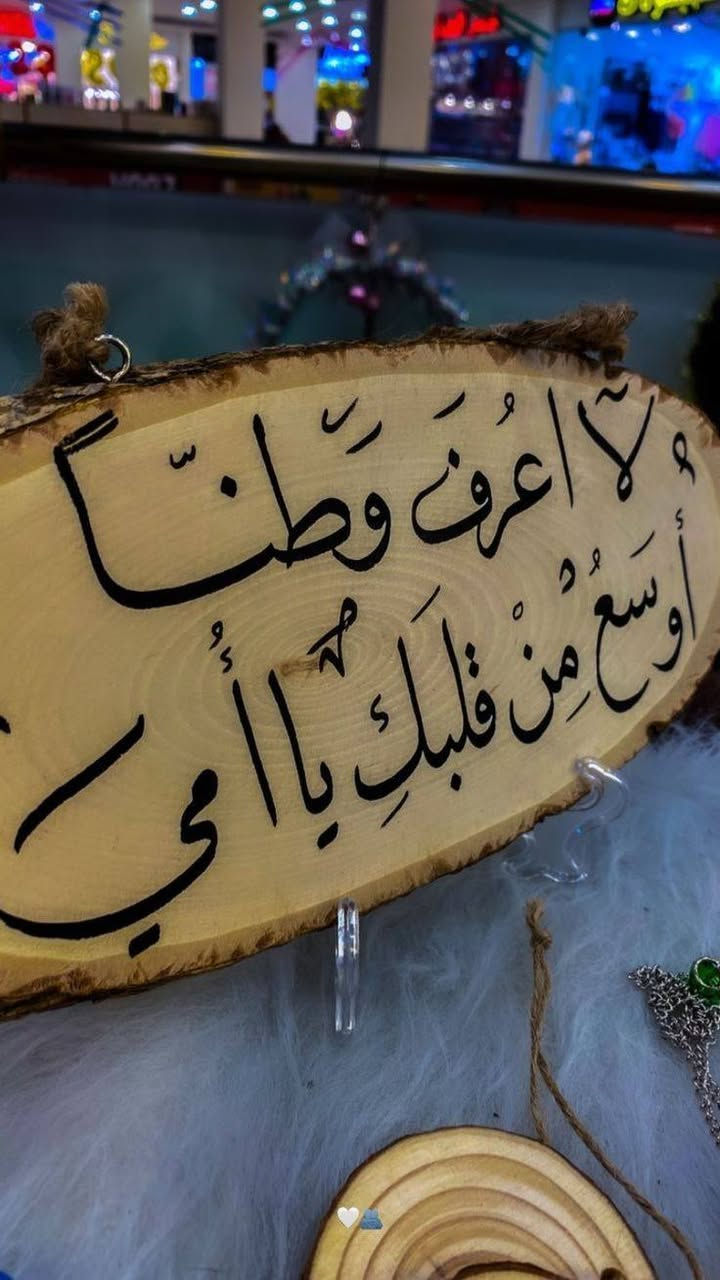 لا اعُرفَ وَطنّاً
أوسَعُ مِنْ قلبَكِ يا أُمي